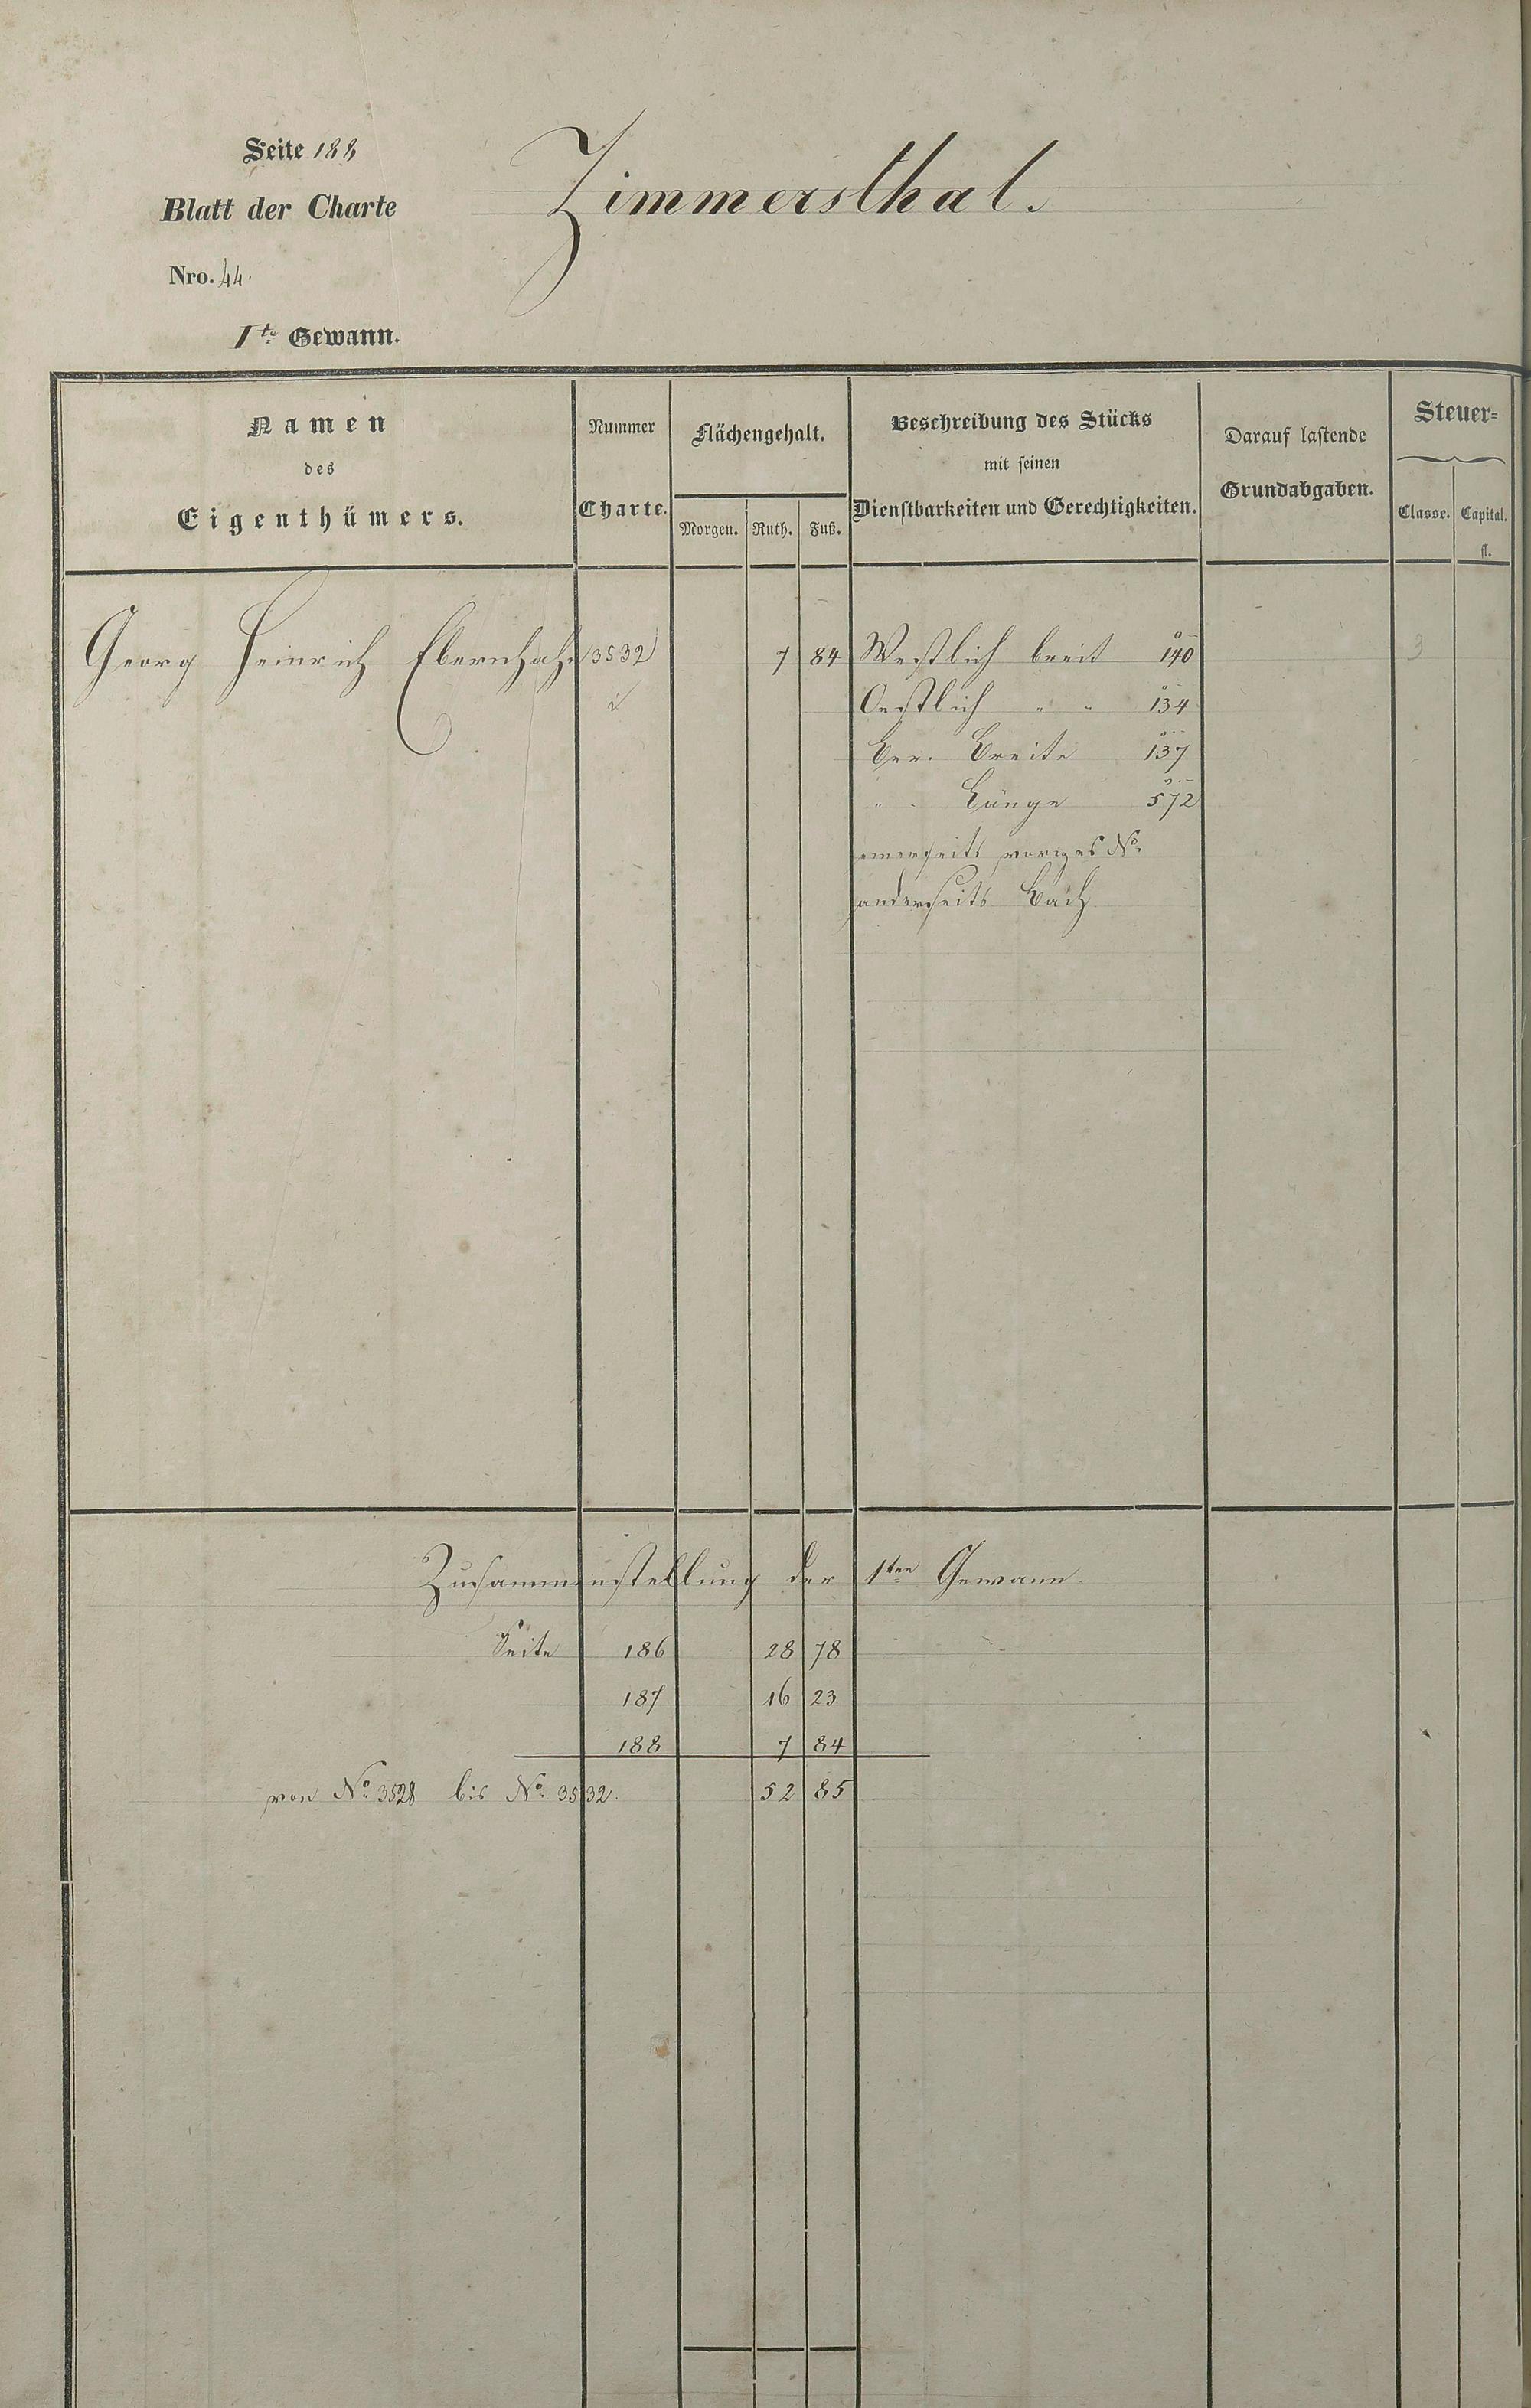 Seite 188
Zimmersthal.
Blatt der Charte
Nro. 44.
I te Gewann.
Namen
des
Eigenthümers.
Nummer
Charte.
Flächengehalt.
Morgen. Ruth. Fuß.
Beschreibung des Stücks
mit seinen
Dienstbarkeiten und Gerechtigkeiten.
Darauf lastende
Grundabgaben.
Steuer=
Classe. Capital.
fl.
Georg Heinrich Ebernhahn 3532 7 84 Westlich breit 140 3
Oestlich " " 134
Ber. Breite 137
" Länge 572
einerseits voriges No.
anderseits Bach
Zusammenstellung der 1ten Gewann.
Seite 186 28 78
187 16 23
188 7 84
von No. 3528 bis No. 3532. 52 85